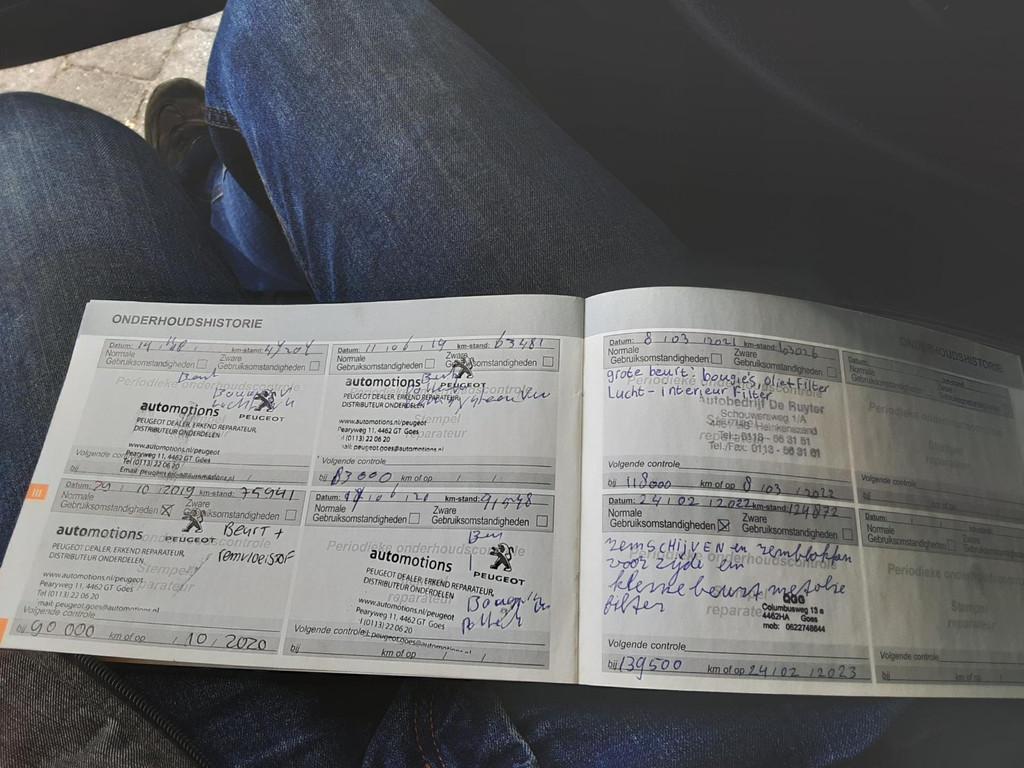 ONDERHOUDSHISTORIE
Datum: 14 km-stand:
Normale Zware
Gebruiksomstandigheden Gebruiksomstandigheden
Periodieke onderhoudscontrole
automotions PEUGEOT
PEUGEOT DEALER, ERKEND REPARATEUR,
DISTRIBUTEUR ONDERDELEN
www.automotions.nl/peugeot
Pearyweg 11, 4462 GT Goes
Tel (0113) 22 06 20
Volgende controle
bij km of op
Datum: 11 06 19 km-stand: 63481
Normale Zware
Gebruiksomstandigheden Gebruiksomstandigheden
automotions PEUGEOT
PEUGEOT DEALER, ERKEND REPARATEUR,
DISTRIBUTEUR ONDERDELEN
Stempel
reparateur
www.automotions.nl/peugeot
Pearyweg 11, 4462 GT Goes
(0113) 22 06 20
Volgende controle
bij 83000 km of op
III
Datum: 29 10 2019 km-stand: 75941
Normale Zware
Gebruiksomstandigheden Gebruiksomstandigheden
PEUGEOT BEURT +
automotions remvloeistof
PEUGEOT DEALER, ERKEND REPARATEUR,
DISTRIBUTEUR ONDERDELEN
Stempel
reparateur
www.automotions.nl/peugeot
Pearyweg 11, 4462 GT Goes
Tel (0113) 22 06 20
mail: peugeot.goes@automotions.nl
Volgende controle
bij 90 000 km of op 10 2020
Datum: 06 20 km-stand: 91548
Normale Zware
Gebruiksomstandigheden Gebruiksomstandigheden
Periodieke onderhoudscontrole
automotions PEUGEOT
PEUGEOT DEALER, ERKEND REPARATEUR,
DISTRIBUTEUR ONDERDELEN
www.automotions.nl/peugeot
Pearyweg 11, 4462 GT Goes
(0113) 22 06 20
Volgende controle peugeot.goes@automotions.nl
bij km of op
Datum: 8 03 2021 km-stand: 103026
Normale Zware
Gebruiksomstandigheden Gebruiksomstandigheden
grote beurt: bougies, olieFilter
Lucht - interieur Filter
Periodieke onderhoudscontrole
Autobedrijf De Ruyter
Stempel
Schouwersweg 1/A
Heinkenszand
reparateur
Tel. 0113 - 56 31 61
Tel./Fax. 0113 - 56 31 61
Volgende controle
bij 118000 km of op 8 03 2022
Datum: 24 02 2022 km-stand: 124872
Normale Zware
Gebruiksomstandigheden Gebruiksomstandigheden
remschijven en remblokken
voorzijde en
kleine beurt met olie
filter
reparateur
Columbusweg 13 a
4462HA Goes
mob: 0622748644
Volgende controle
bij 139500 km of op 24 02 2023
ONDERHOUDSHISTORIE
Datum:
Normale
Gebruiksomstandigheden
Periodieke onderhoudscontrole
Stempel
reparateur
Volgende controle
bij km of op
Datum:
Normale
Gebruiksomstandigheden
Periodieke onderhoudscontrole
Stempel
reparateur
Volgende controle
bij km of op